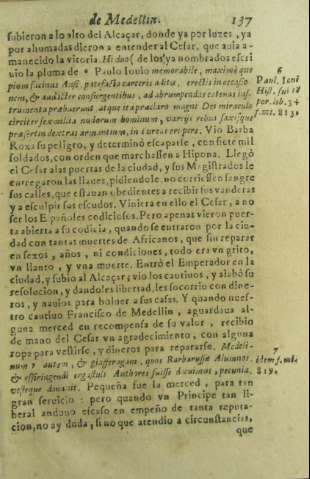 de Medellin. 137
subieron a lo alto del Alcaçar, donde ya por luzes, ya
por ahumadas dieron a entender al Cesar, que auia a-
manecido la vitoria. Hi duo (de los ya nombrados escri
uio la pluma de * Paulo Iouio memorabile, maximè que
pium facinus Ausi, patefacto carceris aditu, erectis in occasio-
nem, & audacter consurgentibus, ad abrumpendas catenas in-
strumenta praebuerunt, atque ita praeclaro magni Dei miraculo
circiter sex millia nudorum hominum, varijs rebus saxisque
praesertim dextras armantium, in turcas erupere. Vio Barba
Roxa su peligro, y determinò escaparse, con siete mil
soldados, con orden que marchassen a Hipona. Llegò
el Cesar a las puertas de la ciudad, y sus Magistrados le
entregaron las llaues, pidiendole no corriessen sangre
sus calles, que estauan obedientes a recibir sus vanderas
y a esculpir sus escudos. Viniera en ello el Cesar, a no
ser los Españoles codiciosos. Pero apenas vieron puer-
ta abierta a su codicia, quando se entraron por la ciu-
dad con tantas muertes de Africanos, que sin reparar
en sexos, años, ni condiciones, todo era vn grito,
vn llanto, y vna muerte. Entrò el Emperador en la
ciudad, y subio al Alcaçar; vio los cautiuos, y alabò su
resolucion, y dandoles libertad, les socorrio con dine-
ros, y nauios para boluer a sus casas. Y quando nues-
tro cautiuo Francisco de Medellin, aguardaua al-
guna merced en recompensa de su valor, recibio
de mano del Cesar vn agradecimiento, con alguna
ropa para vestirse, y dineros para repararse. Medeli-
num 7 autem, & giafferagam, quos Barbarussae Alumnos,
& effringendi ergastuli Authores fuisse diximus, pecunia,
vesteque donauit. Pequeña fue la merced, para tan
gran seruicio: pero quando vn Principe tan li-
beral anduuo escaso en empeño de tanta reputa-
cion, no ay duda, sino que atendio a circunstancias,
que
6
Paul. Ioui
Hist. sui tē
por. lib. 34
7
idem f. mi.
819.